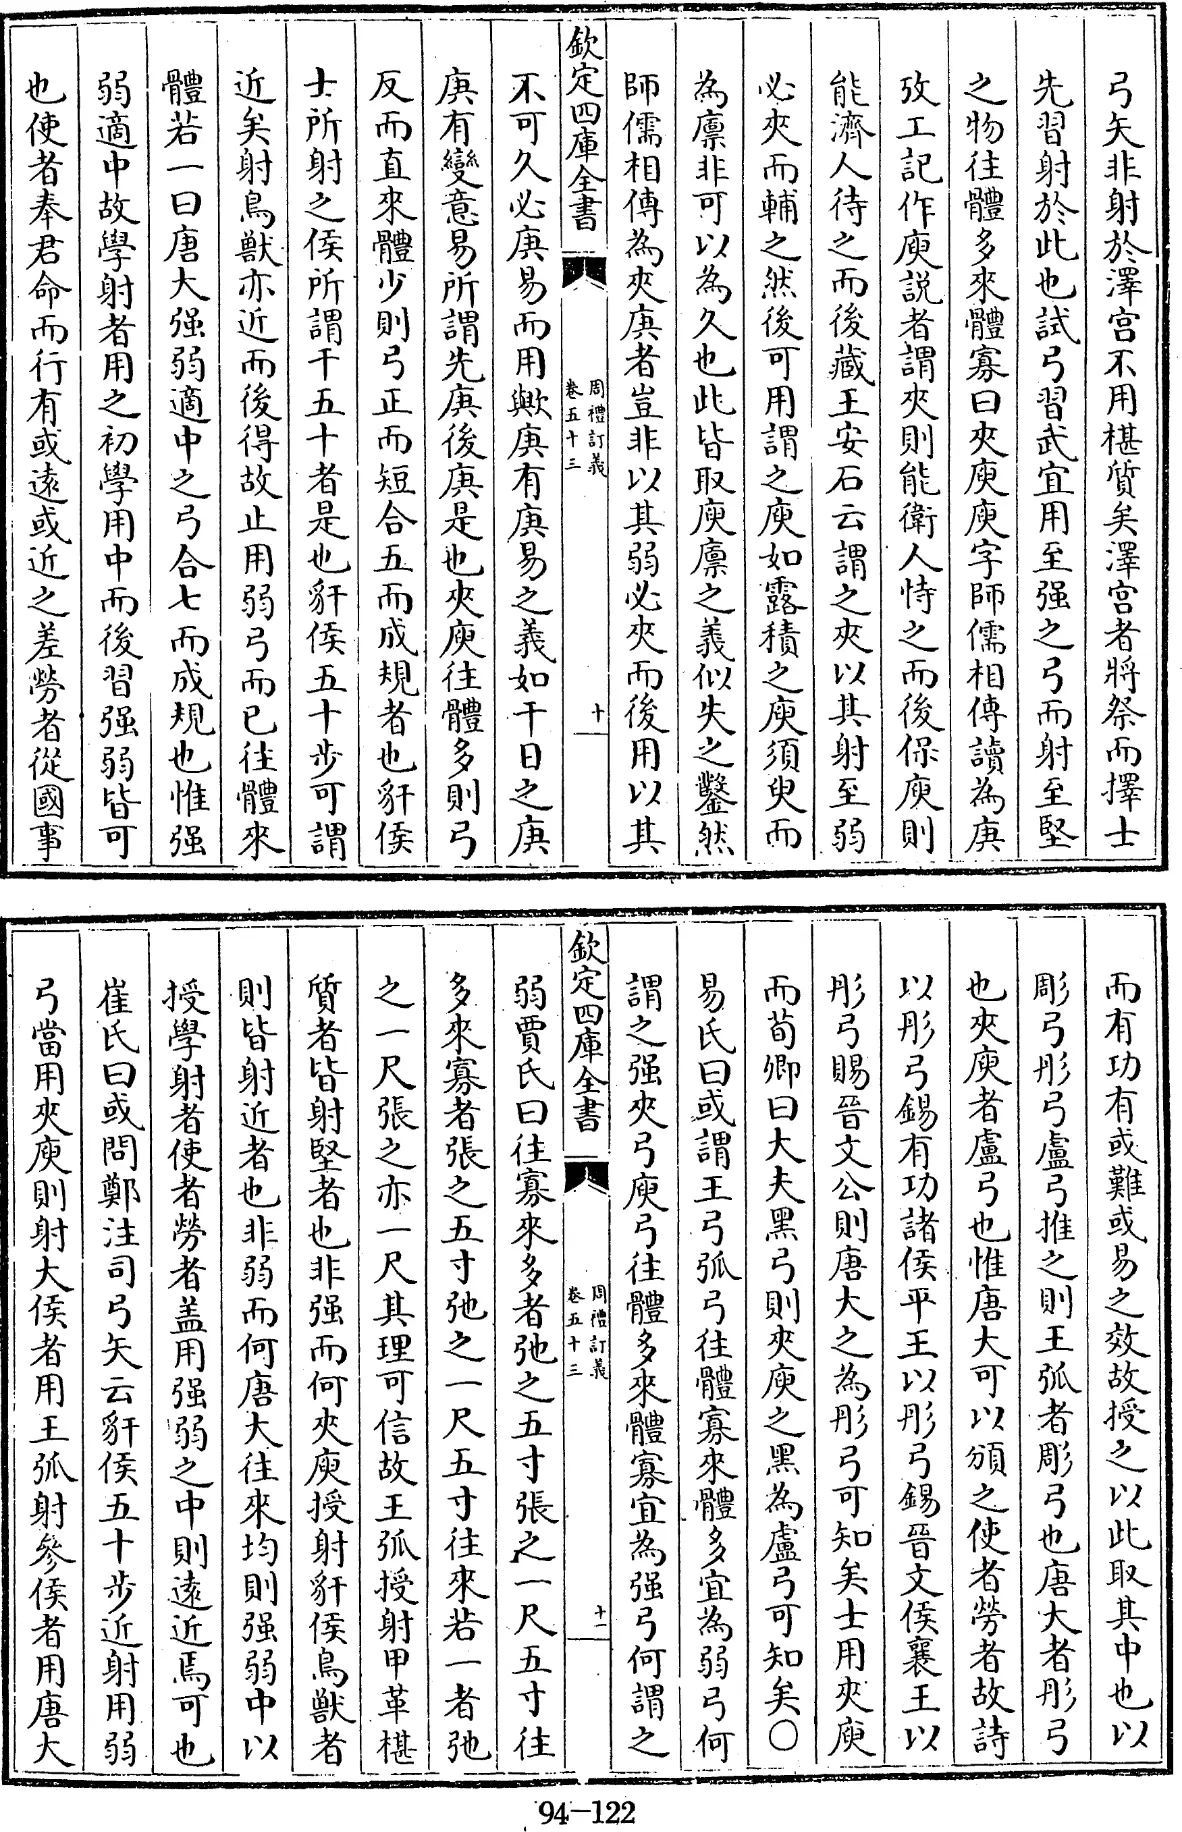 弓矢非射於澤宮不用椹質矣澤宮者將祭而擇士
先習射於此也試弓習武宜用至强之弓而射至堅
之物往體多來體寡曰夾庾庾字師儒相傳讀為庚
攷工記作庾説者謂夾則能衛人恃之而後保庾則
能濟人待之而後藏王安石云謂之夾以其射至弱
必夾而輔之然後可用謂之庾如露積之庾須臾而
為廪非可以為久也此皆取庾廪之義似失之鑿然
師儒相傳為夾庚者豈非以其弱必夾而後用以其
欽定四庫全書
周禮訂義
卷五十三
十
不可久必庚易而用歟庚有庚易之義如干日之庚
庚有變意易所謂先庚後庚是也夾庾往體多則弓
反而直來體少則弓正而短合五而成規者也豻侯
士所射之侯所謂干五十者是也豻侯五十步可謂
近矣射鳥獸亦近而後得故止用弱弓而已往體來
體若一曰唐大强弱適中之弓合七而成規也惟强
弱適中故學射者用之初學用中而後習强弱皆可
也使者奉君命而行有或遠或近之差勞者從國事
而有功有或難或易之效故授之以此取其中也以
彫弓彤弓盧弓推之則王弧者彫弓也唐大者彤弓
也夾庾者盧弓也惟唐大可以頒之使者勞者故詩
以彤弓錫有功諸侯平王以彤弓錫晉文侯襄王以
彤弓賜晉文公則唐大之為彤弓可知矣士用夾庾
而荀卿曰大夫黑弓則夾庾之黑為盧弓可知矣○
易氏曰或謂王弓弧弓往體寡來體多宜為弱弓何
謂之强夾弓庾弓往體多來體寡宜為强弓何謂之
欽定四庫全書
周禮訂義
卷五十三
十一
弱賈氏曰往寡來多者弛之五寸張之一尺五寸往
多來寡者張之五寸弛之一尺五寸往來若一者弛
之一尺張之亦一尺其理可信故王弧授射甲革椹
質者皆射堅者也非强而何夾庾授射豻侯鳥獸者
則皆射近者也非弱而何唐大往來均則强弱中以
授學射者使者勞者盖用强弱之中則遠近焉可也
崔氏曰或問鄭注司弓矢云豻侯五十步近射用弱
弓當用夾庾則射大侯者用王弧射參侯者用唐大
94-122